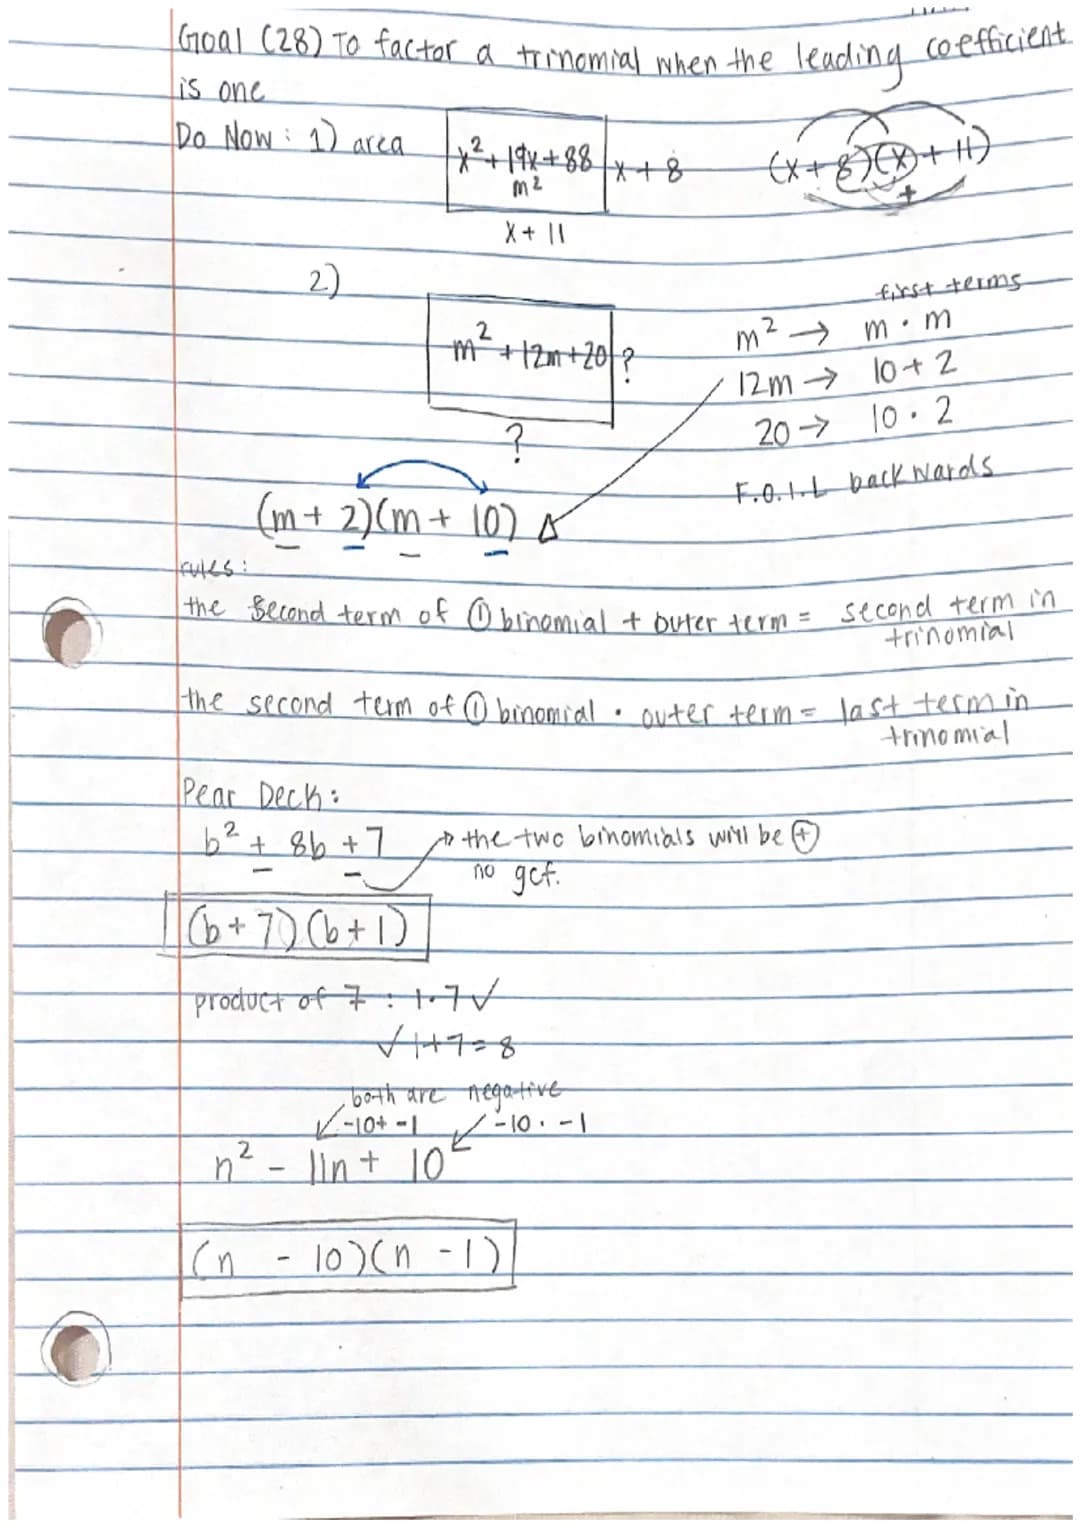 Goal (28) To factor a trinomial when the leading coefficient
is one
Do Now : 1) area
x² + 19x + 88
m²
x + 8
x + 11
(x + 8)(x + 11)
+
2)
m² + 12m + 20
?
?
first terms
m² → m · m
12m → 10 + 2
20 → 10 · 2
F.O.I.L backwards
(m + 2)(m + 10)
rules :
the second term of ① binomial + outer term = second term in
trinomial
the second term of ① binomial · outer term = last term in
trinomial
Pear Deck :
b² + 8b + 7 → the two binomials will be ⊕
no gcf.
(b + 7)(b + 1)
product of 7 : 1·7 ✓
✓ 1+7 = 8
both are negative
-10+ -1 -10 · -1
n² - 11n + 10
(n - 10)(n - 1)